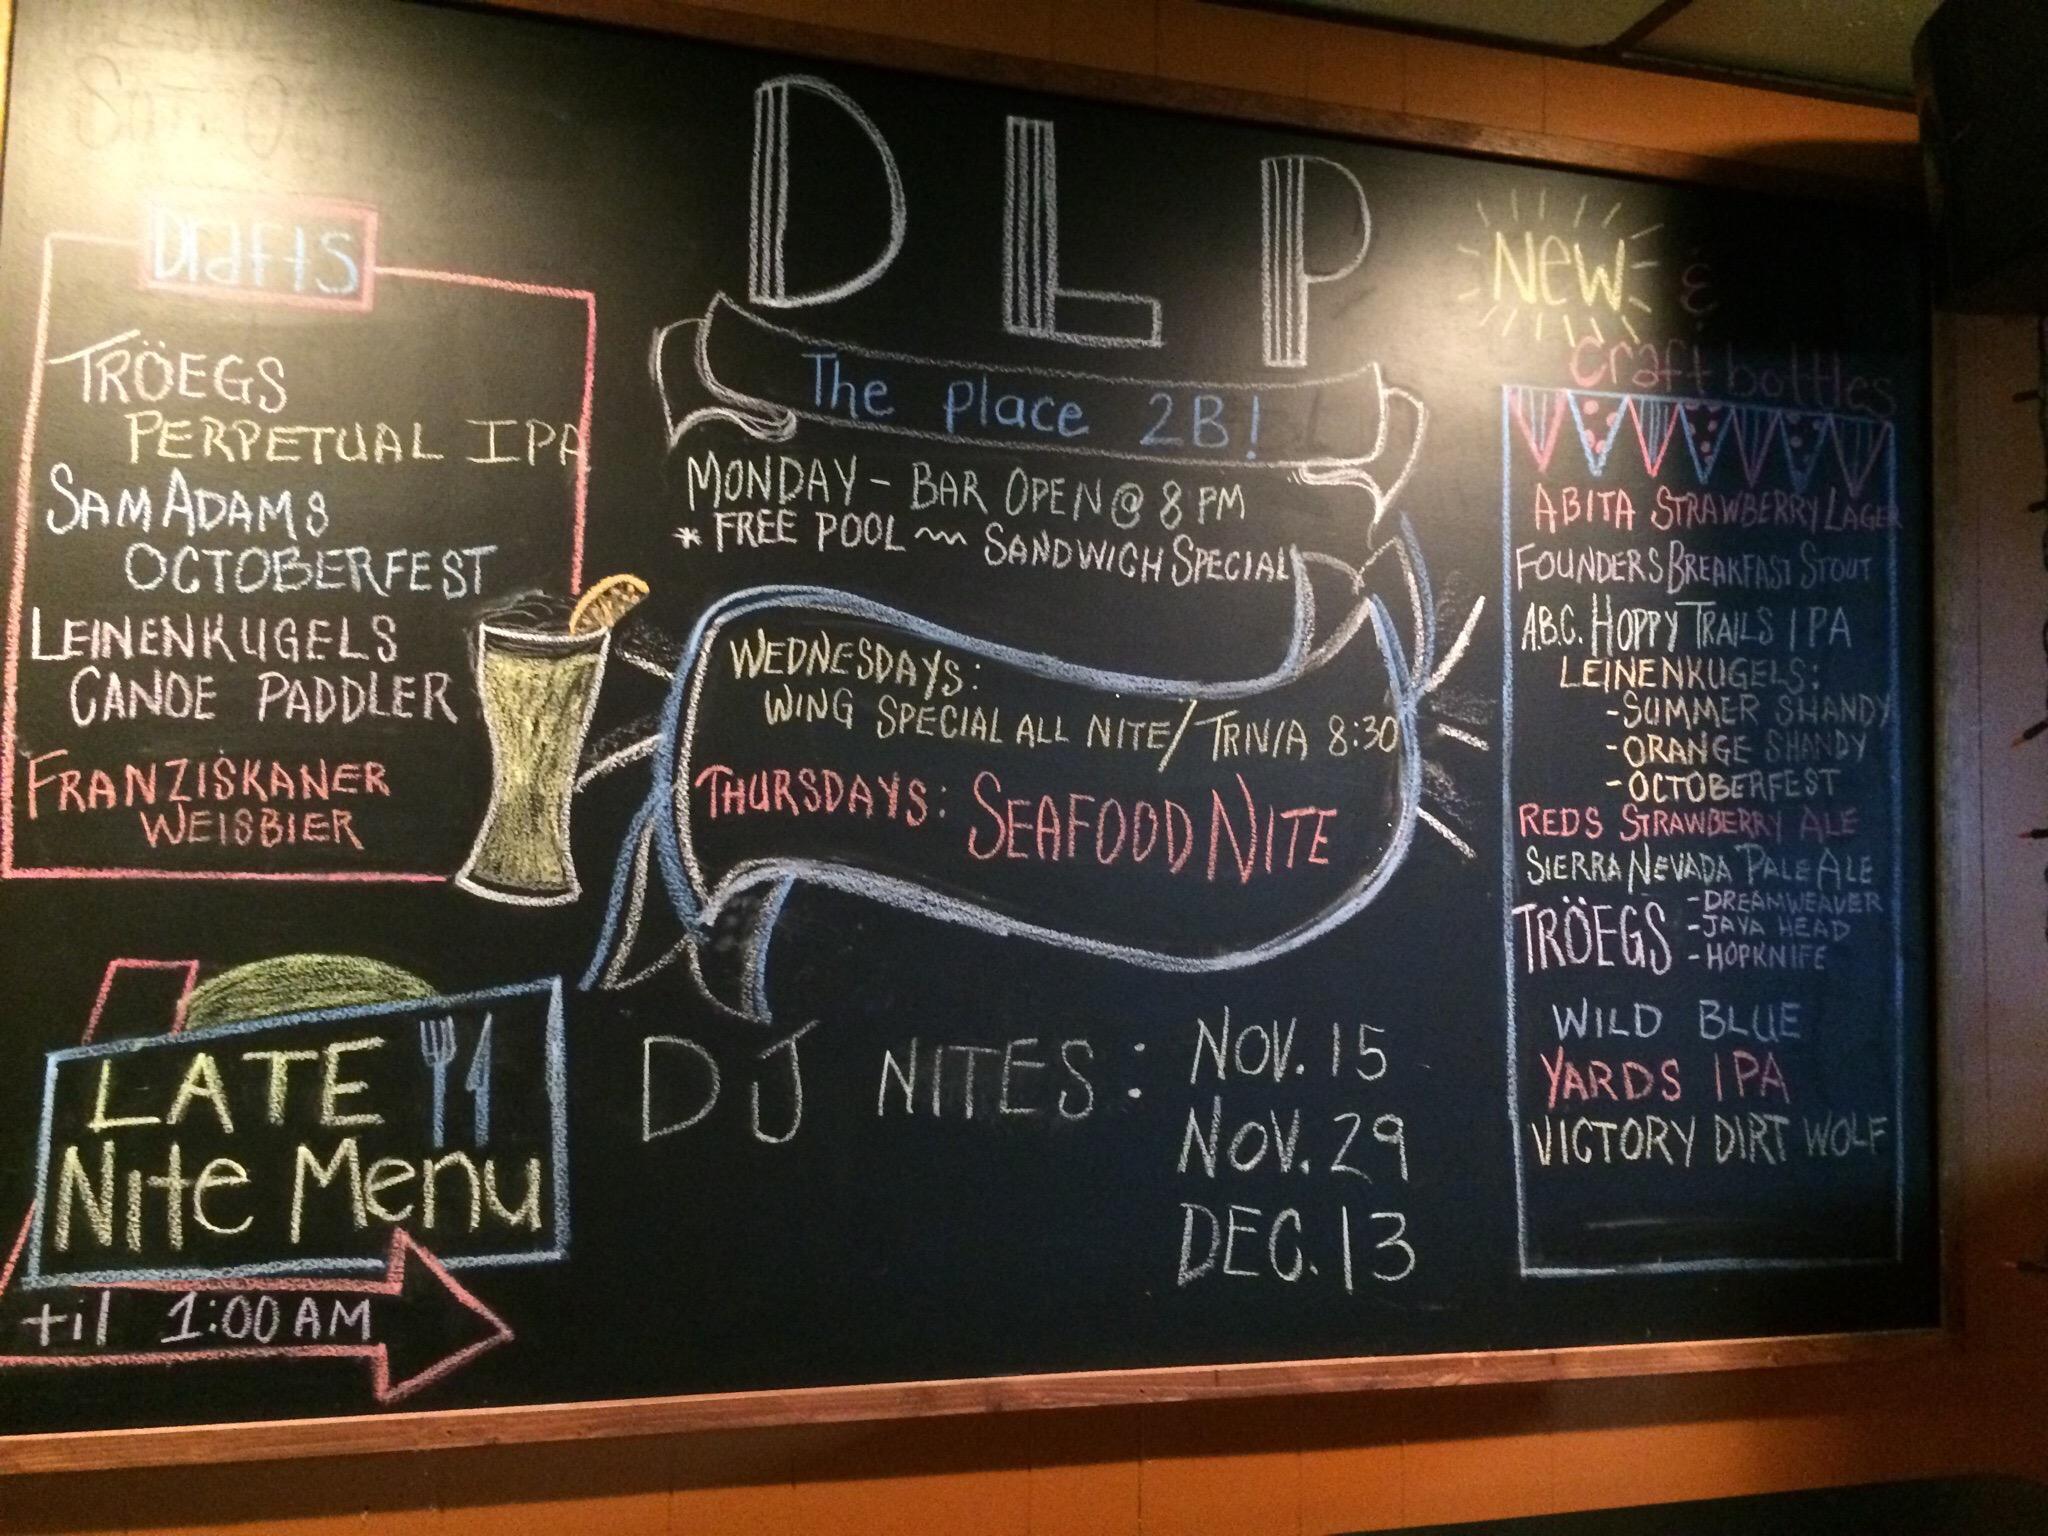 Drafts
TRÖEGS
PERPETUAL IPA
SAM ADAMS
OCTOBERFEST
LEINENKUGELS
CANOE PADDLER
FRANZISKANER
WEISBIER
LATE
Nite Menu
til 1:00 AM
DLP
The place 2B!
MONDAY - BAR OPEN @ 8 PM
* FREE POOL ~~~ SANDWICH SPECIAL
WEDNESDAYS:
WING SPECIAL ALL NITE/ TRIVIA 8:30
THURSDAYS: SEAFOOD NITE
DJ NITES: NOV. 15
NOV. 29
DEC. 13
New &
craft bottles
ABITA STRAWBERRY LAGER
FOUNDERS BREAKFAST STOUT
A.B.C. HOPPY TRAILS IPA
LEINENKUGELS:
-SUMMER SHANDY
-ORANGE SHANDY
-OCTOBERFEST
REDS STRAWBERRY ALE
SIERRA NEVADA PALE ALE
TRÖEGS -DREAMWEAVER
-JAVA HEAD
-HOPKNIFE
WILD BLUE
YARDS IPA
VICTORY DIRT WOLF